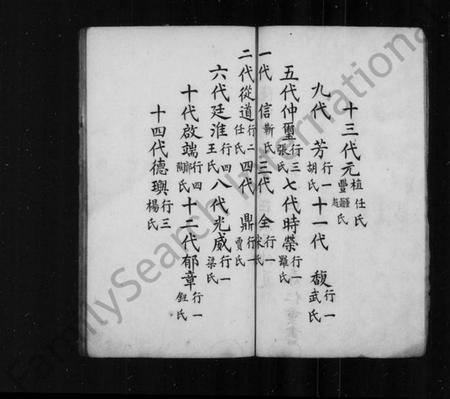 十三代元植任氏豐
九代 芳行一胡氏十一代 馥行一武氏
五代仲璽行三張氏七代時榮行一羅氏
一代 信靳氏三代 全行一宋氏
二代從道行二任氏四代 鼎行一賈氏
六代廷淮行四王氏八代光威行一梁氏
十代啟端行四陶氏十二代郁章行一鈕氏
十四代德璵行三楊氏
FamilySearch International